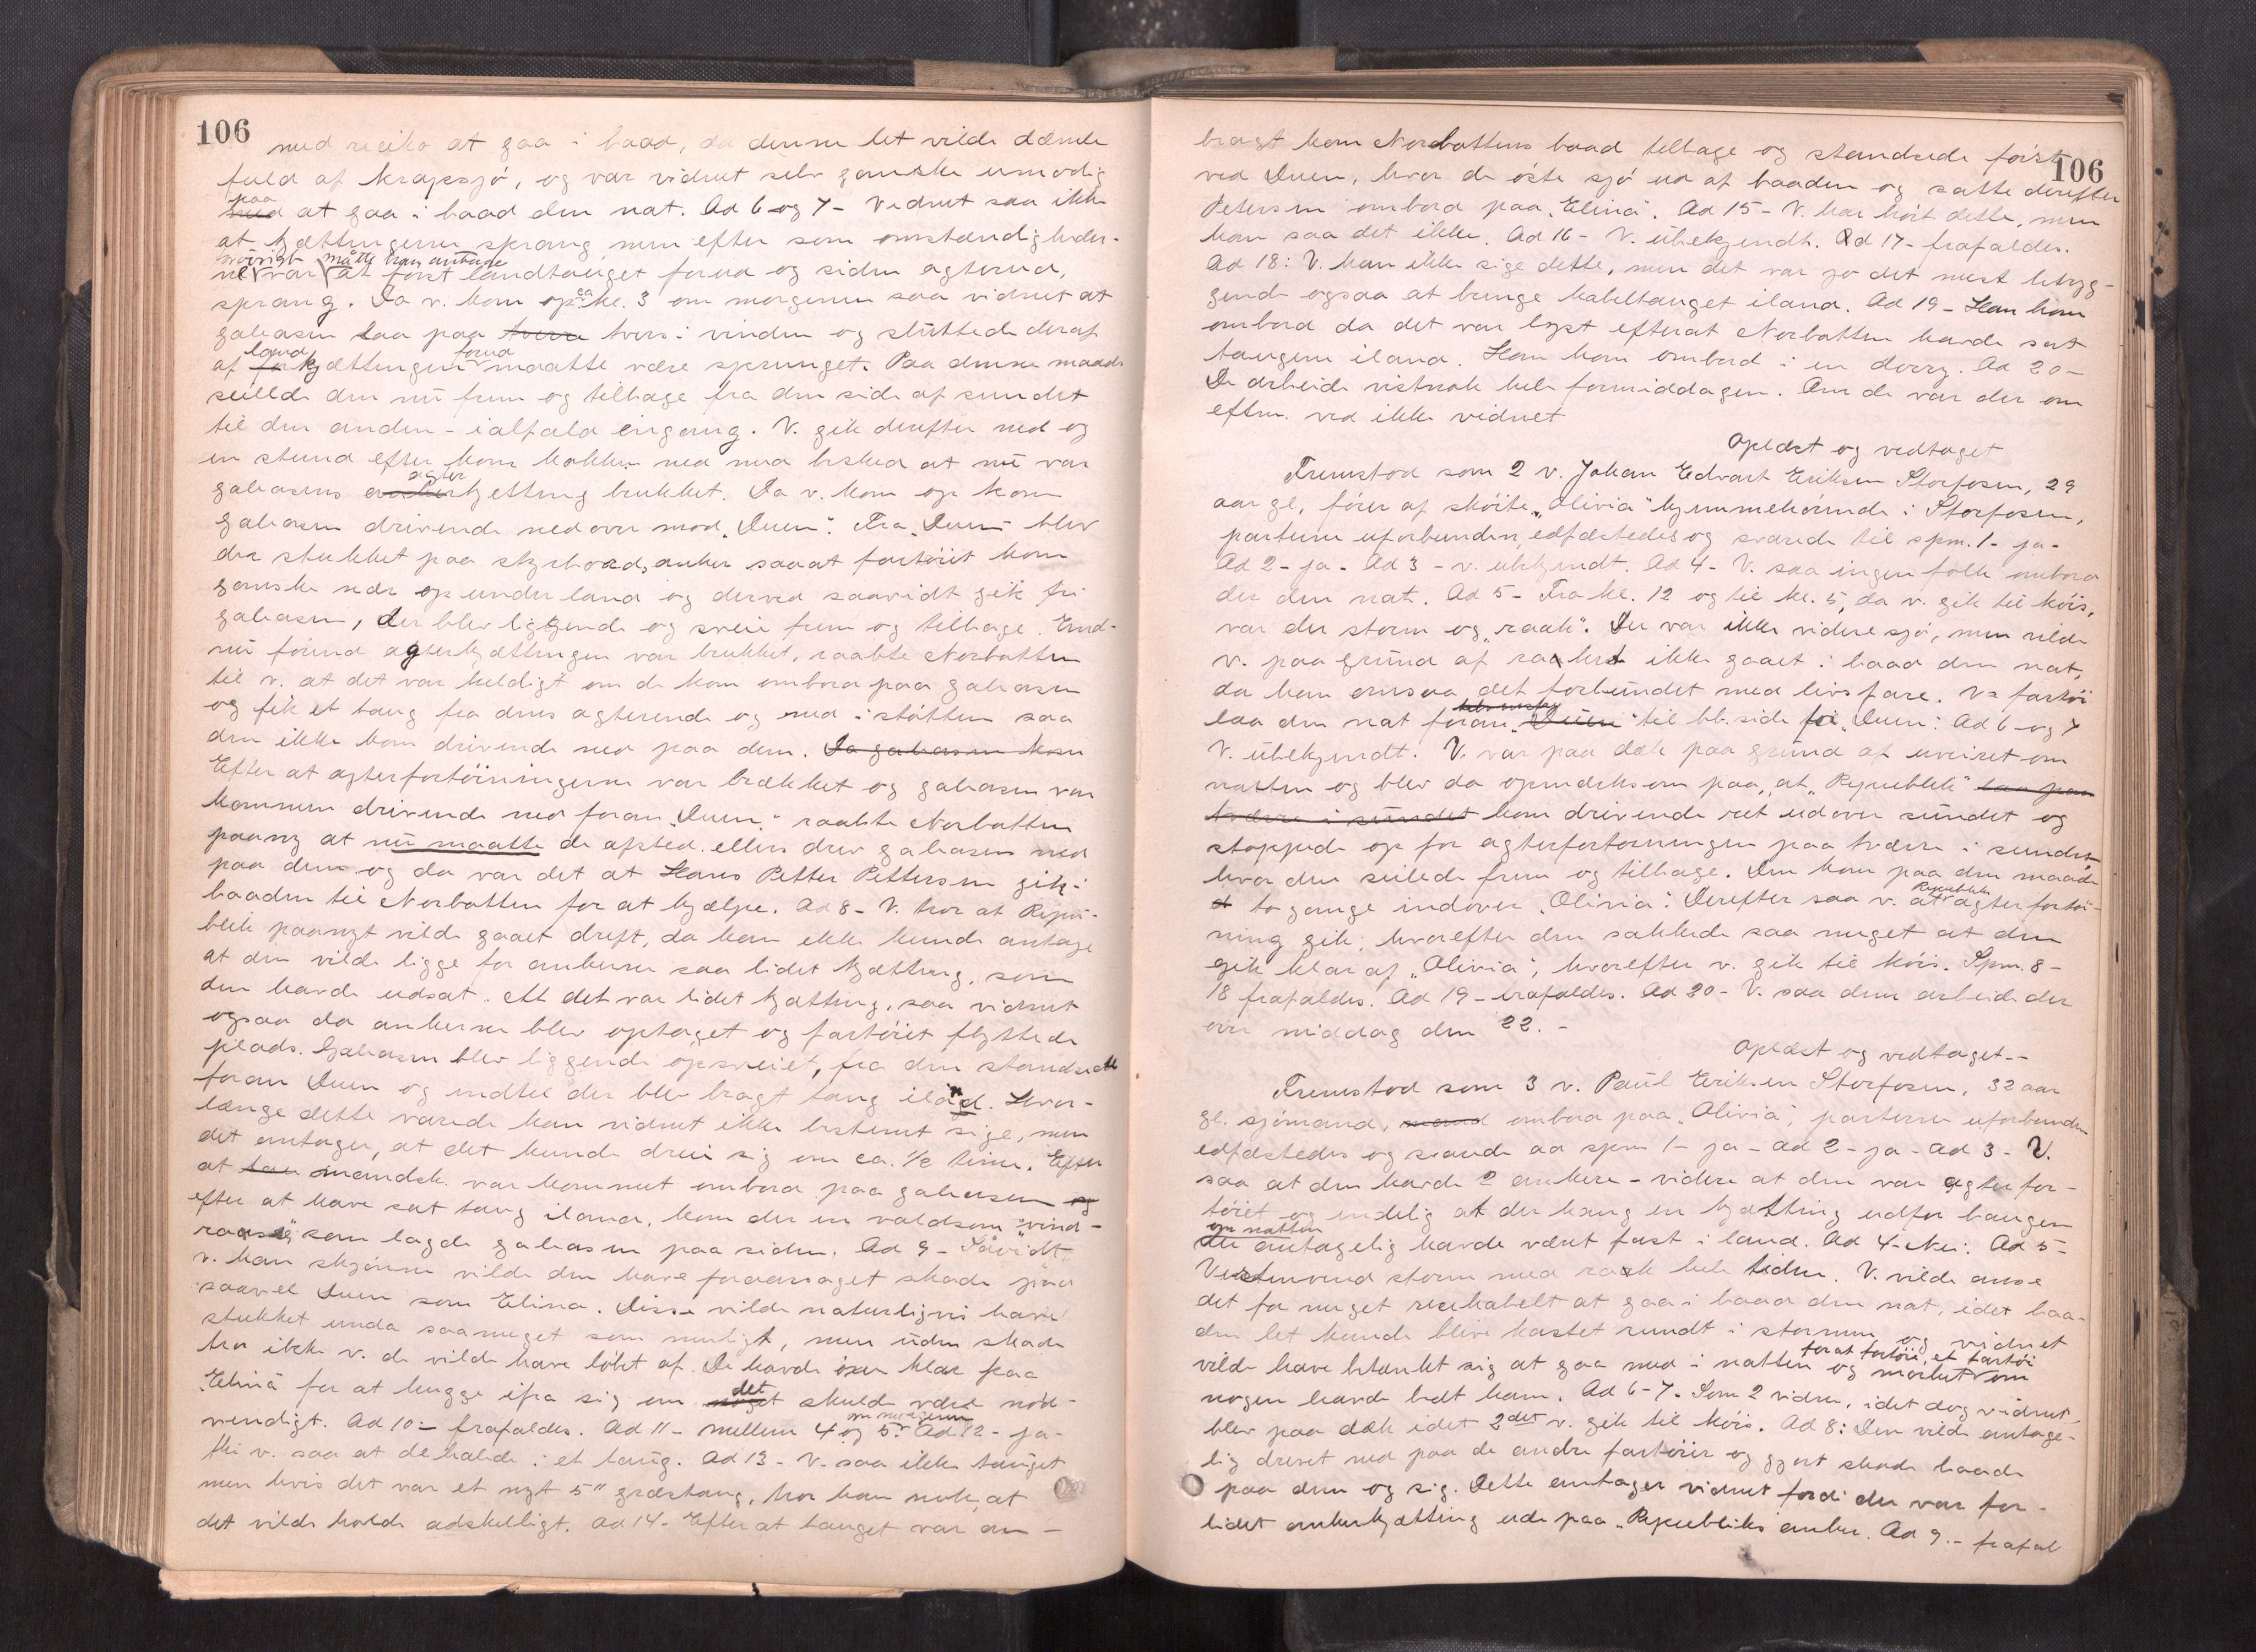 106
med risiko at gaa i baad, da denne let vilde dænde
fuld af krapsjö, og var vidnet selv ganske umodig
paa
med at gaa i baad den nat. Ad 6 og 7 - Vidnet saa ikke
at kjættingerne sprang men efter som omstændigheder-
måtte han antage
ne var at först landtauget forud og siden agterud,
sprang. Da v. kom op ca kl. 3 om morgenen saa vidnet at
galeasen laa paa tvers i vinden og sluttede deraf
af land kjættingen forud maatte være sprunget. Paa denne maade
seilede den nu frem og tilbage fra den side af sundet
til den anden - ialfald engang. V. gik derefter ned og
en stund efter kom kokken ned med besked at nu var
agter
galeasens kjetting brukket. Da v. kom op kom
galeasen drivende nedover mod "Duen". Fra "Duen" blev
der stukket paa styrbords anker saaat fartöiet kom
ganske nær op under land og derved saavidt gik fri
galeasen, der blev liggende og sveie frem og tilbage. End-
nu förend agterkjættingen var brukket, raabte Norbotten
til v. at det var heldigt om de kom ombord paa galeasen
og fik et taug fra dens agterende og ned i stötten saa
den ikke kom drivende ned paa dem. Da galeasen kom
Efter at agterfortöiningerne var brækket og galeasen var
kommen drivende ned foran "Duen" raabte Norbotten
paany at nu maatte de afsted ellers drev galeasen ned
paa dem og da var det at Hans Petter Pettersen gik i
baaden til Norbotten for at hjælpe. Ad 8 - V. tror at Repu-
blik paanyt vilde gaaet drift, da han ikke kunde antage
at den vilde ligge for ankerne saa lidet kjætting, som
den havde udsat. At det var lidet kjætting, saa vidnet
ogsaa da ankerne blev optaget og fartöiet flyttede
plads. Galeasen blev liggende opsveiet, fra den standsede
foran Duen og indtil der blev bragt taug iland. Hvor-
længe dette varede kan vidnet ikke bestemt sige, men
det antager, at det kunde dreie sig om ca. 1/2 time. Efter
at mandsk. var kommet ombord paa galeasen og
efter at have sat taug iland, kom der en voldsom "vind-
som lagde galeasen paa siden. Ad 9 - Såvidt
v. kan skjönne vilde den have foraarsaget skade paa
saavel Duen som Elina. Disse vilde naturligvis have
stukket unda saameget som muligt, men uden skade
tror ikke v. de vilde have löbet af. De havde öxer klar paa
"Elina" for at hugge ifra sig om det skulde være nöd-
vendigt. Ad 10 - frafaldes. Ad 11 - mellem 4 og 5 om morgenen. Ad 12 - ja -
thi v. saa at de halede i et taug. Ad 13 - V. saa ikke tauget
men hvis det var et nyt 5" græstaug, tror han nok, at
det vilde holde adskelligt. Ad 14 - Efter at tauget var an -
106
bragt kom Norbottens baad tilbage og standsede först
ved Duen, hvor de öste sjö ud af baaden og satte derefter
Petersen ombord paa "Elina". Ad 15 - V. har hört dette, men
han saa det ikke. Ad 16 - V. übekjendt. Ad 17 - frafaldes.
Ad 18: V. kan ikke sige dette, men det var jo det mest betryg-
gende ogsaa at bringe kabeltauget iland. Ad 19 - Han kom
ombord da det var lyst efterat Norbotten havde sat
taugene iland. Han kom ombord i en dorry. Ad 20 -
De arbeide vistnok hele formiddagen. Om de var der om
eftm. ved ikke vidnet
Oplæst og vedtaget
Fremstod som 2 v. Johan Edvart Eriksen Storfosen, 29
aar gl, förer af sköite "Olivia" hjemmehörende i Storfosen,
parterne uforbunden, edfæstedes og svarede til spm. 1 - ja -
Ad 2 - ja - Ad 3 - v. ubekjendt. Ad 4 - V. saa ingen folk ombord
der den nat. Ad 5 - Fra kl. 12 og til kl. 5, da v. gik til köis,
var der storm og "raak". Der var ikke videre sjö, men vilde
v. paa grund af raaket ikke gaaet i baad den nat,
da han ansaa det forbundet med livsfare. V's fartöi
laa den nat foran "Duen" til bb. side for "Duen". Ad 6 og 7
V. übekjendt. V. var paa dæk paa grund af uveiret om
natten og blev da opmerksom paa, at "Republik" laa paa
tvære i sundet kom drivende ret udover sundet og
stoppede op for agterfortöiningen paa tvære i sundet,
hvor den seilede frem og tilbage. Den kom paa den maade
to gange indover "Olivia". Derefter saa v. at Republiks agterfortöi-
ning gik, hvorefter den sakkede saa meget at den
gik klar af "Olivia", hvorefter v. gik til köis. Spm. 8 -
18 frafaldes. Ad 19 - frafaldes. Ad 20 - V. saa dem arbeide der
over middag den 22. -
Oplæst og vedtaget. -
Fremstod som 3 v. Paul Eriksen Storfosen, 32 aar
gl. sjömand, ombord paa "Olivia", parterne uforbunden
edfæstedes og svarede ad spm 1 - ja - ad 2 - ja - ad 3 - V.
saa at den havde 2 ankere - videre at den var agter for-
töiet og endelig at der hang en kjætting udfor baugen
om natten
der antagelig havde været fast i land. Ad 4 - Nei. Ad 5 -
Vestenvend storm med raak hele tiden. V. vilde anse
det for meget resikabelt at gaa i baad den nat, idet baa-
den let kunde blive kastet rundt i stormen og vidnet
for at fortöie et fartöi
vilde have betænkt sig at gaa ned i natten og mörket om
nogen havde bedt ham. Ad 6-7. Som 2 vidne, idet dog vidnet
blev paa dæk idet 2det v. gik til köis. Ad 8: Den vilde antage-
lig drevet ned paa de andre fartöier og gjort skade baade
paa dem og sig. Dette antager vidnet fordi der var for -
lidet ankerkjætting ude paa "Republiks anker. Ad 9. - frafal